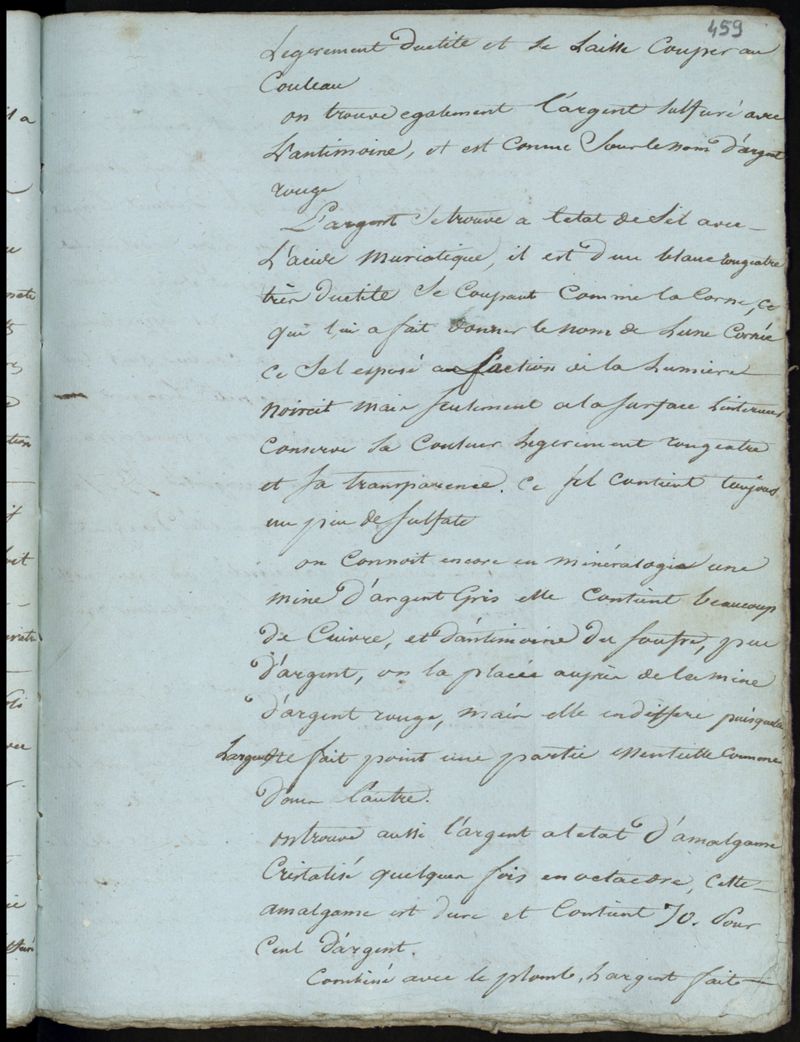 459
Legerement ductile et se laisse Couper au
Couteau
on trouve egalement l'argent Sulfuré avec
L'antimoine, et est Connue Sour le nom d'argent
rouge
L'argent Se trouve a letat de Sel avec
L'acide Muriatique, il est d'un blanc rougeatre
très ductile Se Coupant Comme la Corne, Ce
qui lui a fait donner le nom de Lune Cornée
Ce Sel exposé a l'action de la Lumiere
Noircit mais Seulement a la surface L'interieur
Conserve Sa Couleur Legerement rougeatre
et Sa transparence. Ce Sel Contient toujours
un peu de Sulfate
on Connoit encore en minéralogie une
mine d'argent Gris elle Contient beaucoup
de Cuivre, et d'antimoine du Soufre, peu
d'argent, on la placée auprès de la mine
d'argent rouge, mais elle en differe puisque
L'argent ne fait point une partie essentielle Comme
dans l'autre.
on trouve aussi l'argent a letat d'amalgame
Cristalisé quelques fois en octaedre, Cette
amalgame est dure et Contient 70. Pour
Cent d'argent.
Combiné avec le plomb, L'argent fait